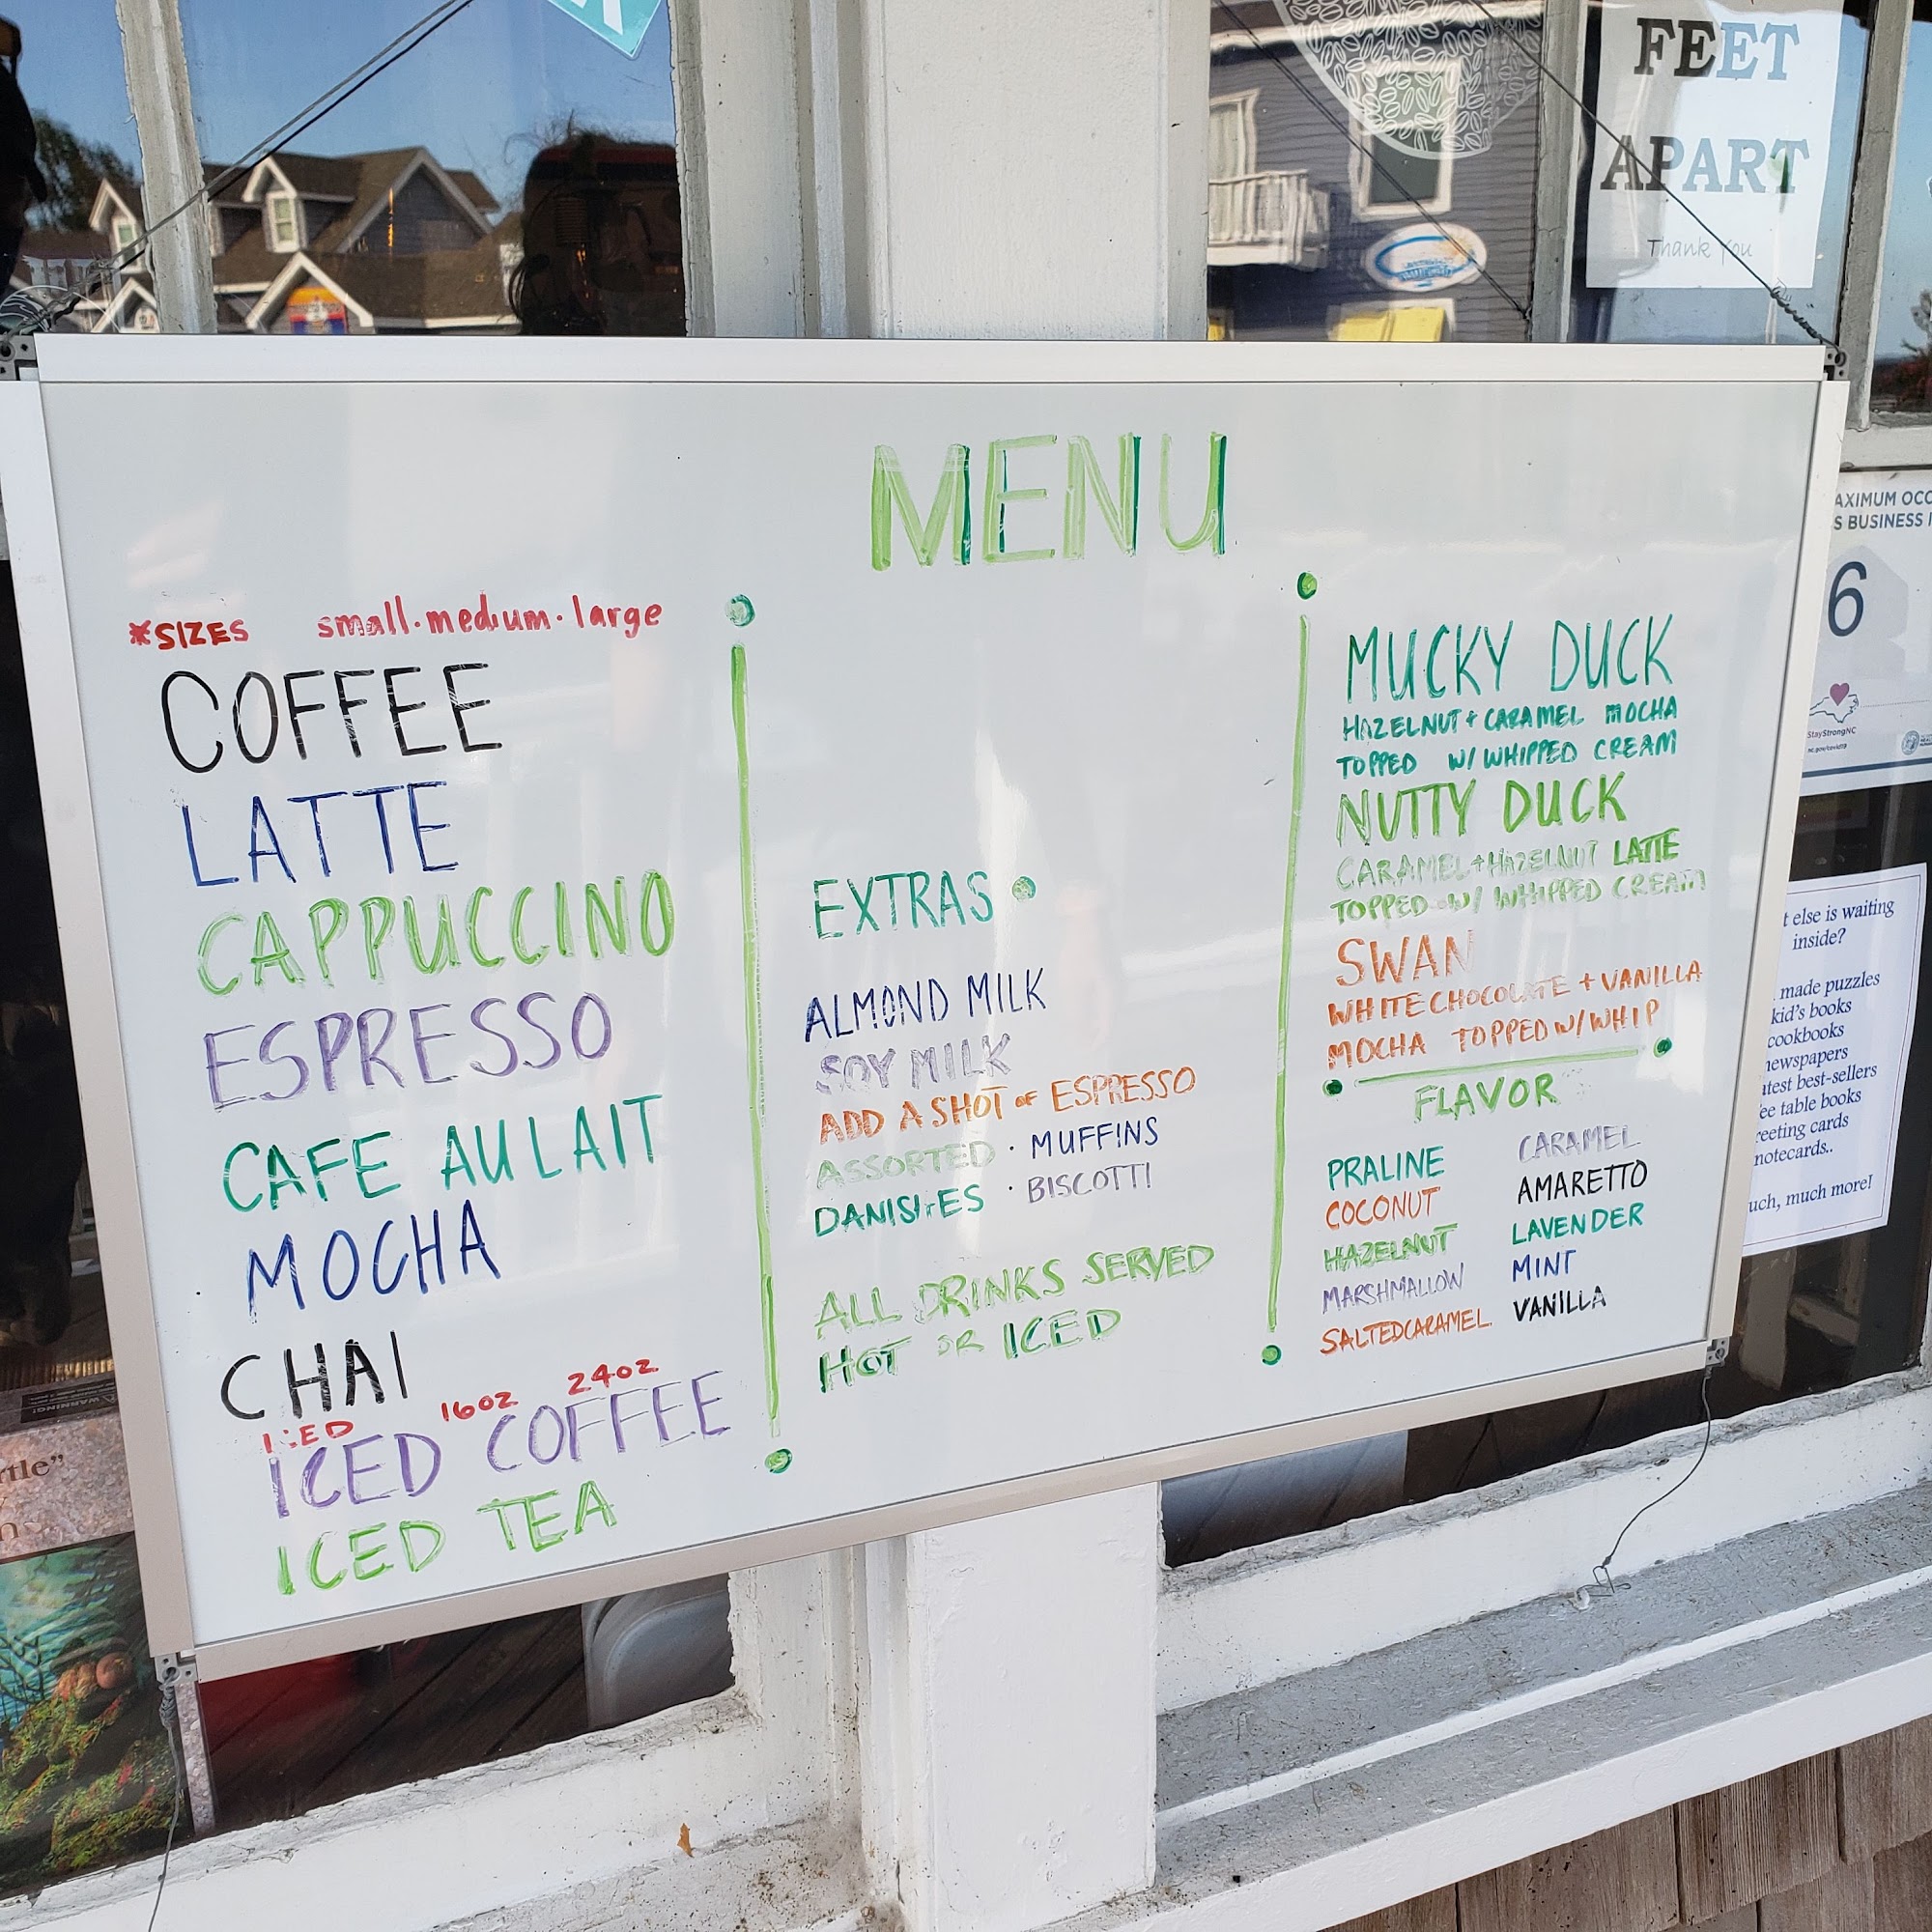 FEET
APART
Thank You
MENU
*SIZES small·medium·large
COFFEE
LATTE
CAPPUCCINO
ESPRESSO
CAFE AU LAIT
MOCHA
CHAI
ICED 16OZ 24OZ
ICED COFFEE
ICED TEA
EXTRAS
ALMOND MILK
SOY MILK
ADD A SHOT OF ESPRESSO
ASSORTED · MUFFINS
DANISHES · BISCOTTI
ALL DRINKS SERVED
HOT OR ICED
MUCKY DUCK
HAZELNUT + CARAMEL MOCHA
TOPPED W/ WHIPPED CREAM
NUTTY DUCK
CARAMEL + HAZELNUT LATTE
TOPPED W/ WHIPPED CREAM
SWAN
WHITE CHOCOLATE + VANILLA
MOCHA TOPPED W/ WHIP
FLAVOR
PRALINE
COCONUT
HAZELNUT
MARSHMALLOW
SALTED CARAMEL
CARAMEL
AMARETTO
LAVENDER
MINT
VANILLA
AXIMUM OCC
S BUSINESS I
6
StayStrongNC
nc.gov/covid19
t else is waiting
inside?
made puzzles
kid's books
cookbooks
newspapers
atest best-sellers
ee table books
reeting cards
notecards..
uch, much more!
WARNING!
rtle"